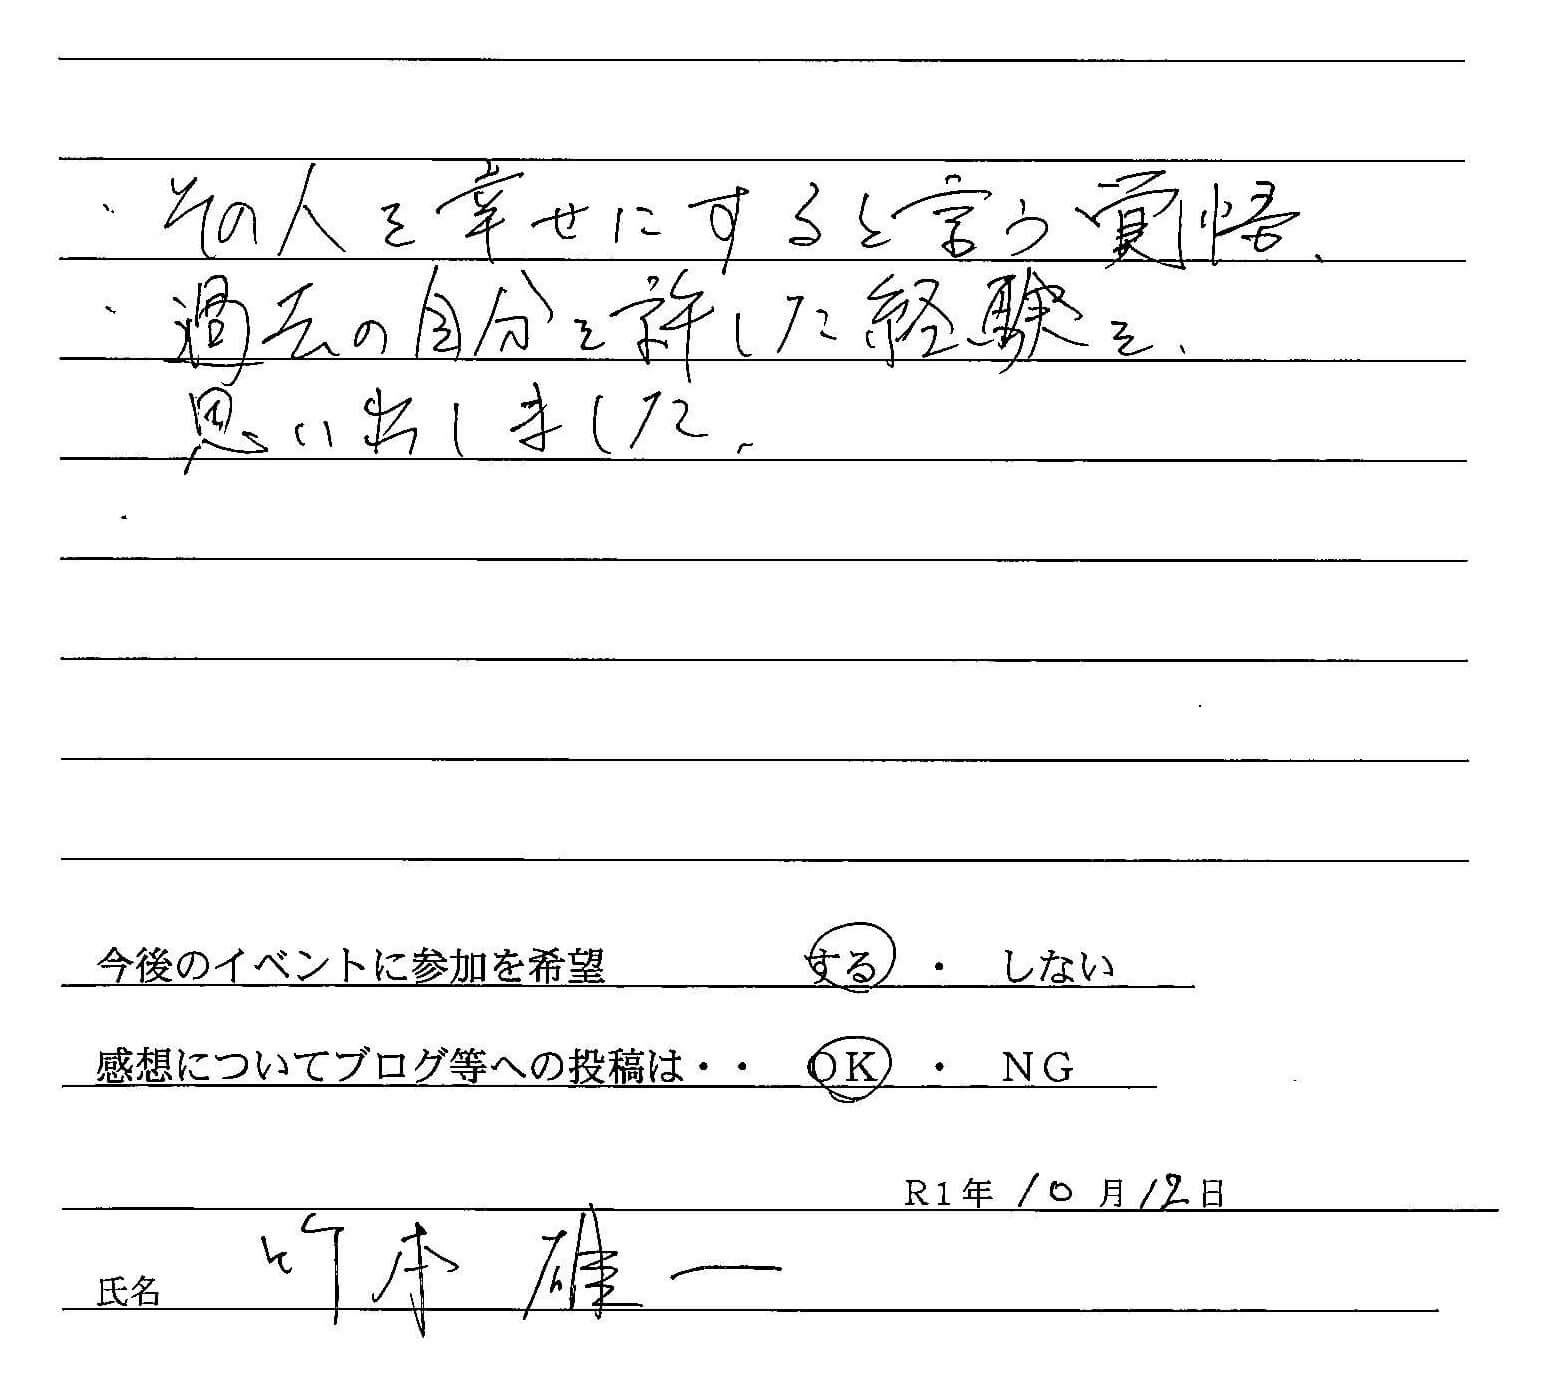 ・その人を幸せにすると言う覚悟、
・過去の自分を許した経験を、
思い出しました。
今後のイベントに参加を希望　する　・　しない
感想についてブログ等への投稿は・・　OK　・　NG
R1年 10月12日
氏名　竹本 雄一